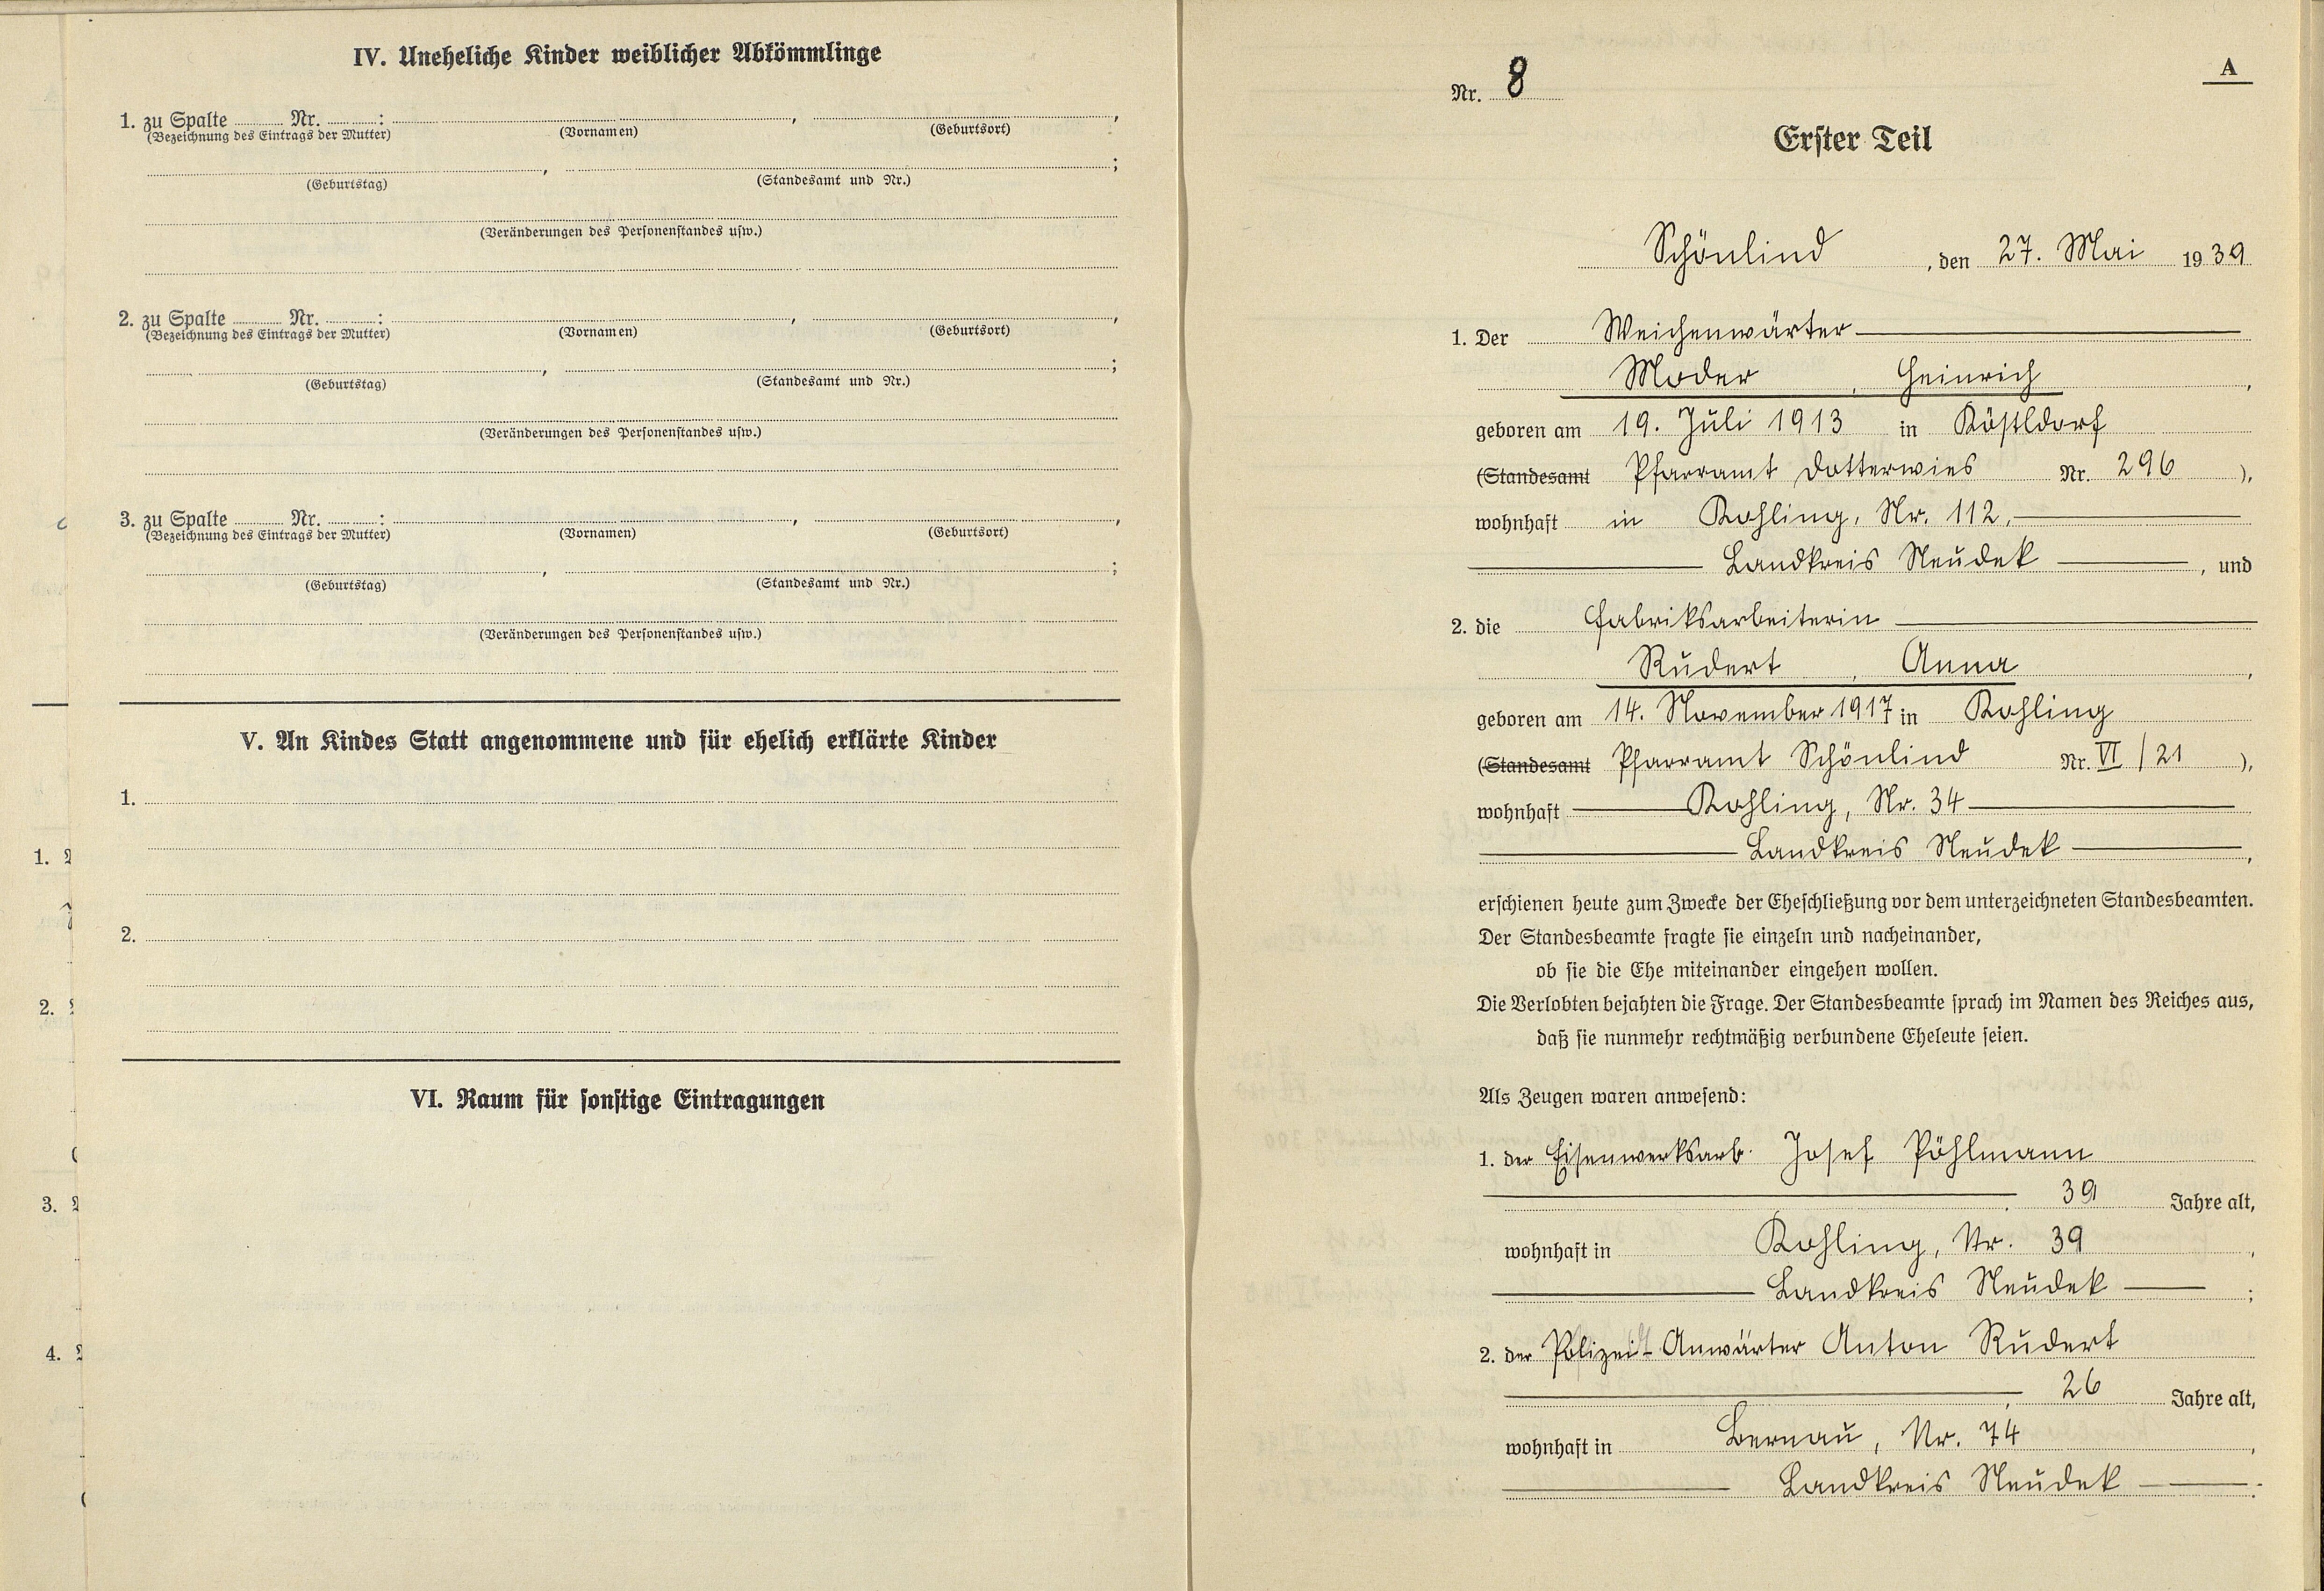 IV. Uneheliche Kinder weiblicher Abkömmlinge
1. zu Spalte ........ Nr. ........:
(Bezeichnung des Eintrags der Mutter) (Vornamen) (Geburtsort)
(Geburtstag) (Standesamt und Nr.)
(Veränderungen des Personenstandes usw.)
2. zu Spalte ........ Nr. ........:
(Bezeichnung des Eintrags der Mutter) (Vornamen) (Geburtsort)
(Geburtstag) (Standesamt und Nr.)
(Veränderungen des Personenstandes usw.)
3. zu Spalte ........ Nr. ........:
(Bezeichnung des Eintrags der Mutter) (Vornamen) (Geburtsort)
(Geburtstag) (Standesamt und Nr.)
(Veränderungen des Personenstandes usw.)
V. An Kindes Statt angenommene und für ehelich erklärte Kinder
1.
2.
VI. Raum für sonstige Eintragungen
1.
2.
3.
4.
A
Nr. 8
Erster Teil
Schönlind, den 27. Mai 1939
1. Der Weichenwärter
Moder, Heinrich,
geboren am 19. Juli 1913 in Köstldorf
(Standesamt Pfarramt Dotterwies Nr. 296),
wohnhaft in Kohling, Nr. 112,
Landkreis Neudek, und
2. die Fabriksarbeiterin
Rudert, Anna,
geboren am 14. November 1917 in Kohling
(Standesamt Pfarramt Schönlind Nr. VI/21),
wohnhaft Kohling, Nr. 34
Landkreis Neudek,
erschienen heute zum Zwecke der Eheschließung vor dem unterzeichneten Standesbeamten.
Der Standesbeamte fragte sie einzeln und nacheinander,
ob sie die Ehe miteinander eingehen wollen.
Die Verlobten bejahten die Frage. Der Standesbeamte sprach im Namen des Reiches aus,
daß sie nunmehr rechtmäßig verbundene Eheleute seien.
Als Zeugen waren anwesend:
1. der Eisenwerksarb. Josef Pöhlmann
, 39 Jahre alt,
wohnhaft in Kohling, Nr. 39,
Landkreis Neudek;
2. der Polizei-Anwärter Anton Rudert
, 26 Jahre alt,
wohnhaft in Bernau, Nr. 74,
Landkreis Neudek.